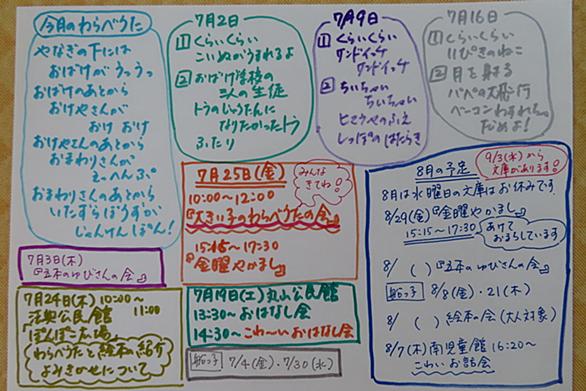 今月のわらべうた
やなぎの下には
おばけがうっうっ
おばけのあとから
おけやさんが
おけ おけ
おけやさんのあとから
おまわりさんが
えっへんぷ。
おまわりさんのあとから
いたずらぼうずが
じゃんけんぽん!
7月2日
① くらいくらい
こいぬがうまれるよ
② おばけ学校の
三人の生徒
トラのじゅうたんに
なりたかったトラ
ふたり
7月9日
① くらいくらい
サンドイッチ
サンドイッチ
② ちいちゃい
ちいちゃい
しっぽのはたらき
7月16日
① くらいくらい
11ぴきのねこ
② 月を射る
パパの大飛行
ベーコンわすれちゃ
だめよ!
7月25日(金)
10:00〜12:00
『大きい子のわらべうたの会』
15:15〜17:30
『金曜やかまし』
みんな
きてね!
7月3日(木)
『五本のゆびさんの会』
7月24日(木) 10:00〜
11:00
公民館
『ぽんぽこ広場』
わらべうたと絵本の紹介
よみきかせについて
7月19日(土)丸山公民館
13:30〜おはなし会
14:30〜こわ〜いおはなし会
船っ子 7/4(金)・7/30(水)
8月の予定
9/3(水)から
文庫があります!
8月は水曜日の文庫はお休みです
8/29(金)『金曜やかまし』
15:15〜17:30
あけて
おまちしています
8/ ( )『五本のゆびさんの会』
船っ子 8/8(金)・21(木)
8/ ( ) 絵本の会(大人対象)
8/7(木)南児童館 16:20〜
こわいお話会